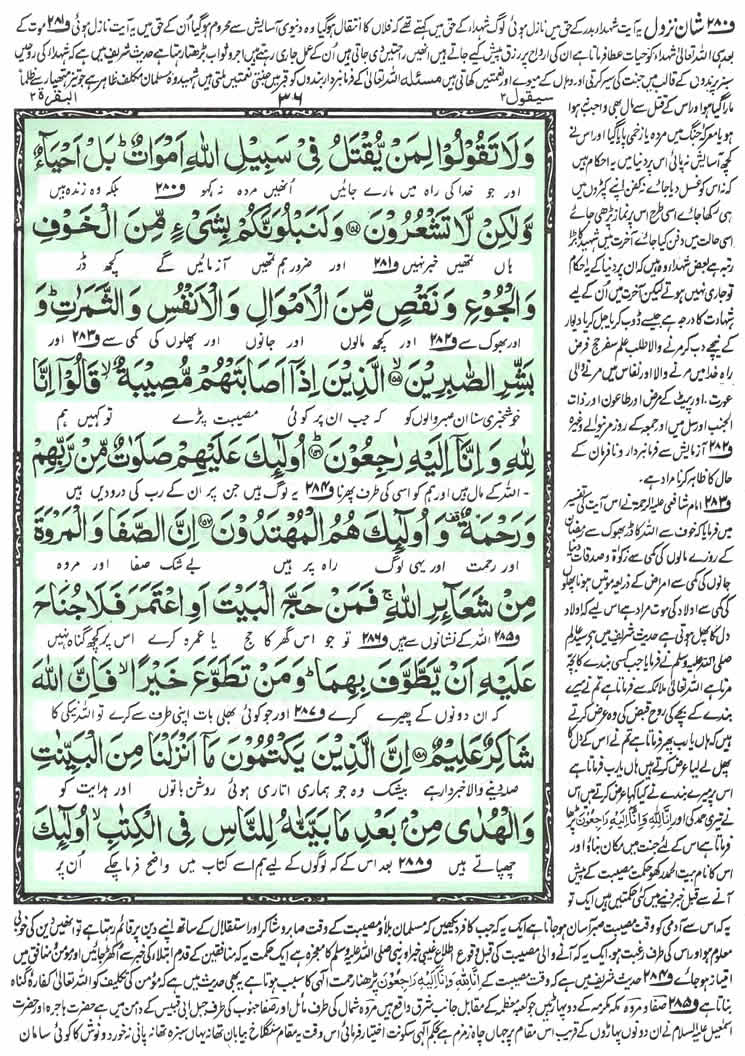 ف۲۸۰ شان نزول یہ آیت شہداء بدر کے حق میں نازل ہوئی لوگ شہداء کے حق میں کہتے تھے کہ فلاں کا انتقال ہوگیا وہ دنیوی آسایش سے محروم ہوگیا اُن کے حق میں یہ آیت نازل ہوئی ف۲۸۱ موت کے
بعد ہی اللہ تعالیٰ شہداء کو حیات عطا فرماتا ہے ان کی ارواح پر رزق پیش کیے جاتے ہیں انھیں راحتیں دی جاتی ہیں اُن کے عمل جاری رہتے ہیں اجر و ثواب بڑھتا رہتا ہے حدیث شریف میں ہے کہ شہداء کی روحیں
سبز پرندوں کے قالب میں جنت کی سیر کرتی اور وہاں کے میوے اور نعمتیں کھاتی ہیں مسئلہ اللہ تعالیٰ کے فرمانبردار بندوں کو قبر میں جنتی نعمتیں ملتی ہیں شہید وہ مسلمان مکلف ظاہر ہے جو تیز ہتھیار سے ظلماً
سیقول ۲
۳۶
البقرۃ ۲
وَلَا تَقُوْلُوْا لِمَنْ يُّقْتَلُ فِیْ سَبِيْلِ اللّٰهِ اَمْوَاتٌ ؕ بَلْ اَحْيَآءٌ
اور جو خدا کی راہ میں مارے جائیں انھیں مردہ نہ کہو ف۲۸۰ بلکہ وہ زندہ ہیں
وَّلٰكِنْ لَّا تَشْعُرُوْنَ ۝ وَلَنَبْلُوَنَّكُمْ بِشَیْءٍ مِّنَ الْخَوْفِ
ہاں تمھیں خبر نہیں ف۲۸۱ اور ضرور ہم تمھیں آزمائیں گے کچھ ڈر
وَالْجُوْعِ وَنَقْصٍ مِّنَ الْاَمْوَالِ وَالْاَنْفُسِ وَالثَّمَرٰتِ ؕ وَ
اور بھوک سے ف۲۸۲ اور کچھ مالوں اور جانوں اور پھلوں کی کمی سے ف۲۸۳ اور
بَشِّرِ الصّٰبِرِيْنَ ۝ الَّذِيْنَ اِذَاۤ اَصَابَتْهُمْ مُّصِيْبَةٌ ۙ قَالُوْۤا اِنَّا
خوشخبری سنا ان صبر والوں کو کہ جب ان پر کوئی مصیبت پڑے تو کہیں ہم
لِلّٰهِ وَاِنَّاۤ اِلَيْهِ رٰجِعُوْنَ ۝ اُولٰٓئِكَ عَلَيْهِمْ صَلَوٰتٌ مِّنْ رَّبِّهِمْ
اللہ کے مال ہیں اور ہم کو اسی کی طرف پھرنا ف۲۸۴ یہ لوگ ہیں جن پر ان کے رب کی درودیں ہیں
وَرَحْمَةٌ ۟ وَاُولٰٓئِكَ هُمُ الْمُهْتَدُوْنَ ۝ اِنَّ الصَّفَا وَالْمَرْوَةَ
اور رحمت اور یہی لوگ راہ پر ہیں بے شک صفا اور مروہ
مِنْ شَعَآئِرِ اللّٰهِ ۚ فَمَنْ حَجَّ الْبَيْتَ اَوِ اعْتَمَرَ فَلَا جُنَاحَ
ف۲۸۵ اللہ کے نشانوں سے ہیں ف۲۸۶ تو جو اس گھر کا حج یا عمرہ کرے اس پر کچھ گناہ نہیں
عَلَيْهِ اَنْ يَّطَّوَّفَ بِهِمَا ؕ وَمَنْ تَطَوَّعَ خَيْرًا ۙ فَاِنَّ اللّٰهَ
کہ ان دونوں کے پھیرے کرے ف۲۸۷ اور جو کوئی بھلی بات اپنی طرف سے کرے تو اللہ نیکی کا
شَاكِرٌ عَلِيْمٌ ۝ اِنَّ الَّذِيْنَ يَكْتُمُوْنَ مَاۤ اَنْزَلْنَا مِنَ الْبَيِّنٰتِ
صلہ دینے والا خبردار ہے بیشک وہ جو ہماری اتاری ہوئی روشن باتوں اور ہدایت کو
وَالْهُدٰی مِنْۢ بَعْدِ مَا بَيَّنّٰهُ لِلنَّاسِ فِی الْكِتٰبِ ۙ اُولٰٓئِكَ
چھپاتے ہیں ف۲۸۸ بعد اس کے کہ لوگوں کے لیے ہم اسے کتاب میں واضح فرما چکے اُن پر
مارا گیا ہو اور اس کے قتل سے مال بھی واجب نہ ہوا
ہو یا معرکہ جنگ میں مردہ یا زخمی پایا گیا اور اس نے
کچھ آسایش نہ پائی اس پر دنیا میں یہ احکام ہیں
کہ نہ اس کو غسل دیا جائے نہ کفن اپنے کپڑوں میں
ہی رکھا جائے اسی طرح اس پر نماز پڑھی جائے
اسی حالت میں دفن کیا جائے آخرت میں شہید کا بڑا
رتبہ ہے بعض شہداء وہ ہیں کہ ان پر دنیا کے یہ احکام
تو جاری نہیں ہوتے لیکن آخرت میں اُن کے لیے
شہادت کا درجہ ہے جیسے ڈوب کر یا جل کر یا دیوار
کے نیچے دب کر مرنے والا طلب علم سفر حج غرض
راہ خدا میں مرنے والا اور نفاس میں مرنے والی
عورت اور پیٹ کے مرض اور طاعون اور ذات
الجنب اور سل میں اور جمعہ کے روز مرنے والے وغیرہ
ف۲۸۲ آزمایش سے فرمانبردار و نافرمان کے
حال کا ظاہر کرنا مراد ہے۔
ف۲۸۳ امام شافعی علیہ الرحمۃ نے اس آیت کی تفسیر
میں فرمایا کہ خوف سے اللہ کا ڈر بھوک سے رمضان
کے روزے مالوں کی کمی سے زکوٰۃ و صدقات دینا
جانوں کی کمی سے امراض کے ذریعہ موتیں ہونا پھلوں
کی کمی سے اولاد کی موت مراد ہے اس لیے کہ اولاد
دل کا پھل ہوتی ہے حدیث شریف میں ہے سید عالم
صلی اللہ علیہ وسلم نے فرمایا جب کسی بندے کا بچہ
مرتا ہے اللہ تعالیٰ ملائکہ سے فرماتا ہے تم نے میرے
بندے کے بچے کی روح قبض کی وہ عرض کرتے
ہیں کہ ہاں یا رب پھر فرماتا ہے تم نے اس کے دل کا
پھل لے لیا عرض کرتے ہیں ہاں یا رب فرماتا ہے
اس پر میرے بندے نے کیا کہا عرض کرتے ہیں اس
نے تیری حمد کی اور اِنَّا لِلّٰهِ وَاِنَّاۤ اِلَيْهِ رَاجِعُوْنَ پڑھا
فرماتا ہے اس کے لئے جنت میں مکان بناؤ اور
اس کا نام بیت الحمد رکھو حکمت مصیبت کے پیش
آنے سے قبل خبر دینے میں کئی حکمتیں ہیں ایک تو
یہ کہ اس سے آدمی کو وقت مصیبت صبر آسان ہو جاتا ہے ایک یہ کہ جب کافر دیکھیں کہ مسلمان بلا و مصیبت کے وقت صابر و شاکر اور استقلال کے ساتھ اپنے دین پر قائم رہتا ہے تو انھیں دین کی خوبی
معلوم ہو اور اس کی طرف رغبت ہو۔ ایک یہ کہ آنے والی مصیبت کی قبل وقوع اطلاع غیبی خبر اور نبی صلی اللہ علیہ وسلم کا معجزہ ہے ایک حکمت یہ کہ منافقین کے قدم ابتلاء کی خبر سے اکھڑ جائیں اور مؤمن و منافق میں
امتیاز ہو جائے ف۲۸۴ حدیث شریف میں ہے کہ وقت مصیبت کے اِنَّا لِلّٰهِ وَاِنَّاۤ اِلَيْهِ رَاجِعُوْنَ پڑھنا رحمت الٰہی کا سبب ہوتا ہے یہ بھی حدیث میں ہے کہ مؤمن کی تکلیف کو اللہ تعالیٰ کفارہ گناہ
بناتا ہے ف۲۸۵ صفا و مروہ مکہ مکرمہ کے دو پہاڑ ہیں جو کعبہ معظمہ کے مقابل جانب شرق واقع ہیں مروہ شمال کی طرف مائل اور صفا جنوب کی طرف جبل ابی قبیس کے دامن میں ہے حضرت ہاجرہ اور حضرت
اسمٰعیل علیہ السلام نے ان دونوں پہاڑوں کے قریب اس مقام پر جہاں چاہ زمزم ہے بحکم الٰہی سکونت اختیار فرمائی اس وقت یہ مقام سنگلاخ بیابان تھا نہ یہاں سبزہ تھا نہ پانی نہ خورد و نوش کا کوئی سامان